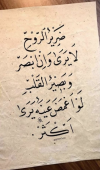 ضَرِيرُ الرُّوحِ
لَا يَرَىٰ وَإِنْ أَبْصَرَ
وَبَصِيرُ القَلْبِ
لَوْ أَغْمَضَ عَيْنَيْهِ يَرَىٰ
أَكْثَرْ